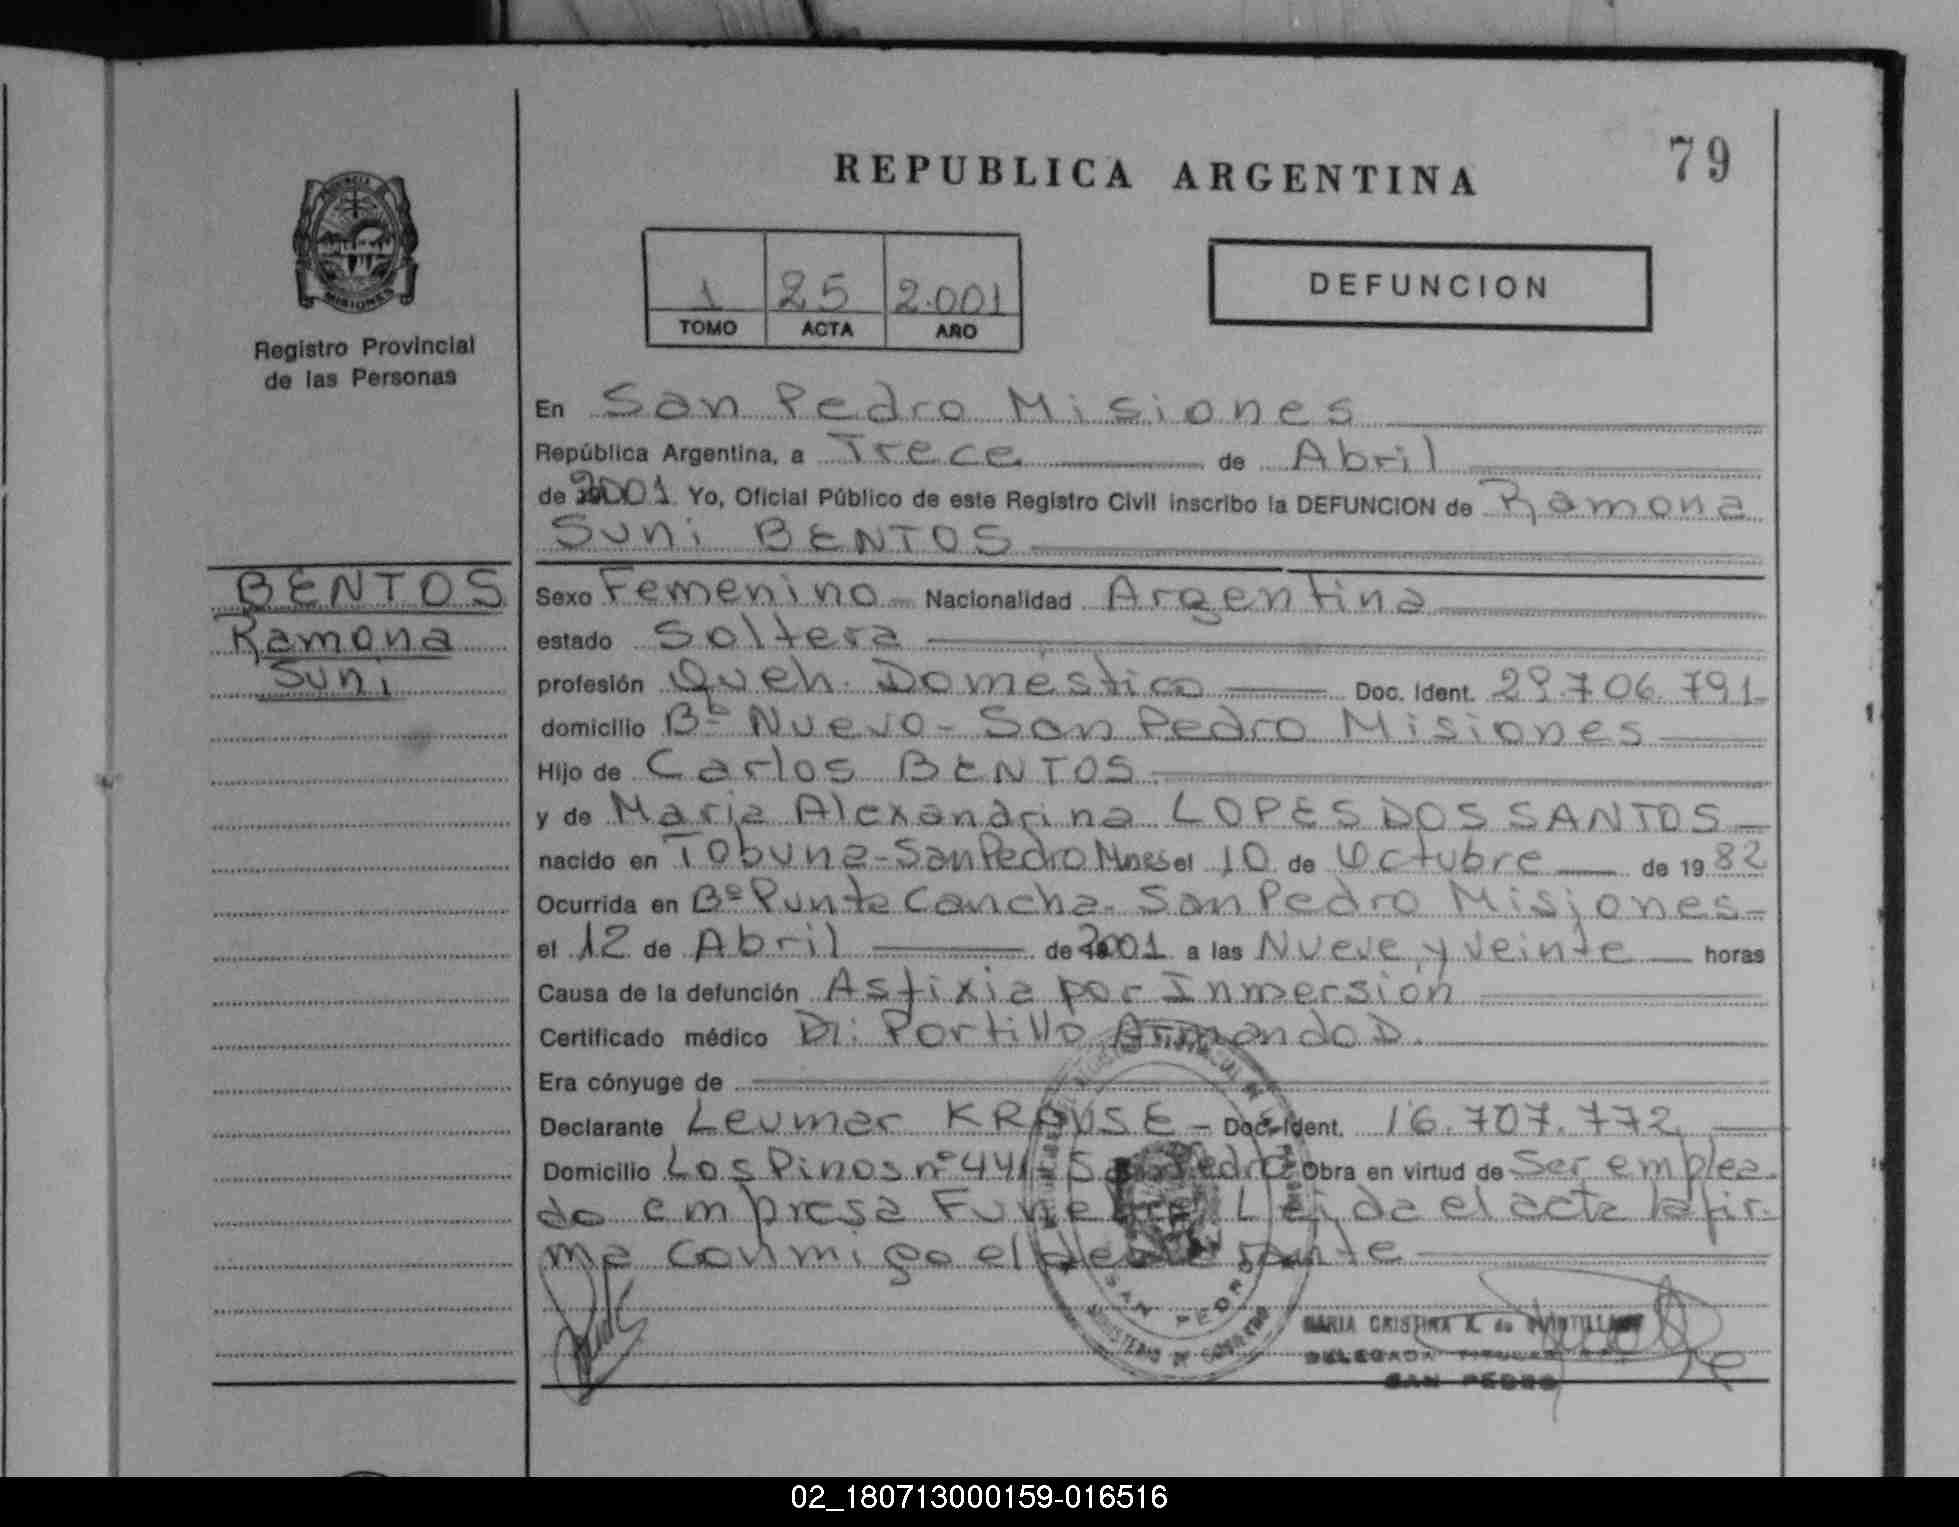 79
REPUBLICA ARGENTINA
PROVINCIA DE
MISIONES
Registro Provincial
de las Personas
1 25 2.001
TOMO ACTA AÑO
DEFUNCION
En San Pedro Misiones
República Argentina, a Trece de Abril
de 2001 Yo, Oficial Público de este Registro Civil inscribo la DEFUNCION de Ramona
Suni BENTOS
BENTOS
Ramona
Suni
Sexo Femenino Nacionalidad Argentina
estado Soltera
profesión Queh. Doméstico Doc. Ident. 29.706.791
domicilio Bº Nuevo - San Pedro Misiones
Hijo de Carlos BENTOS
y de Maria Alexandrina LOPES DOS SANTOS
nacido en Tobuna - San Pedro Mnes el 10 de Octubre de 19 82
Ocurrida en Bº Punta Cancha - San Pedro Misiones -
el 12 de Abril de 2001 a las Nueve y veinte horas
Causa de la defunción Asfixia por Inmersión
Certificado médico Dr: Portillo Armando D.
Era cónyuge de
Declarante Leumar KRAUSE - Doc. Ident. 16.707.772
Domicilio Los Pinos nº 441 San Pedro Obra en virtud de Ser emplea-
do empresa Funebre Leida el acta la fir-
ma conmigo el declarante
SAN PEDRO
MINISTERIO DE GOBIERNO
MARIA CRISTINA K. de
DELEGADA TITULAR
SAN PEDRO
02_180713000159-016516